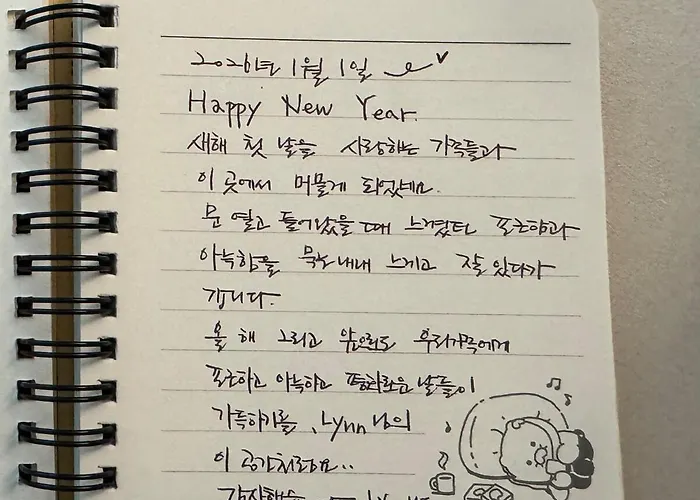 2026년 1월 1일
Happy New Year.
새해 첫 날을 사랑하는 가족들과
이 곳에서 머물게 되었네요.
문 열고 들어왔을 때 느꼈던 포근함과
아늑함을 묵는내내 느끼고 잘 있다가
갑니다.
올 해 그리고 앞으로도 우리가족에게
포근하고 아늑하고 평화로운 날들이
가득하기를, Lynn님의
이 공간처럼요..